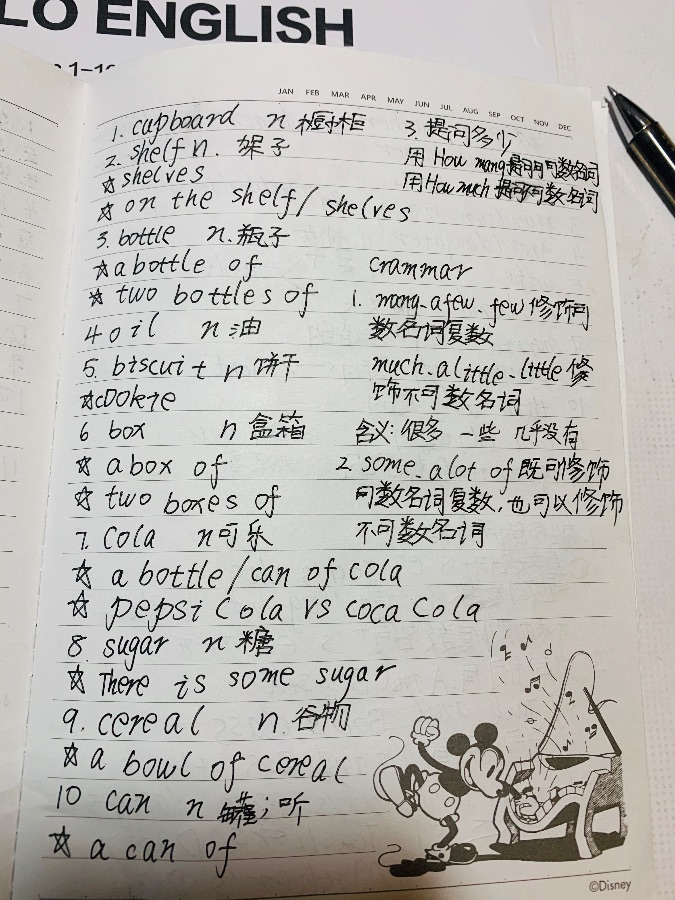 LO ENGLISH
JAN FEB MAR APR MAY JUN JUL AUG SEP OCT NOV DEC
1. cupboard n 橱柜
2. shelf n. 架子
☆ shelves
☆ on the shelf / shelves
3. bottle n. 瓶子
☆ a bottle of
☆ two bottles of
4 oil n 油
5. biscuit n 饼干
☆ cookie
6 box n 盒箱
☆ a box of
☆ two boxes of
7. Cola n 可乐
☆ a bottle / can of cola
☆ pepsi Cola VS coca Cola
8. sugar n 糖
☆ There is some sugar
9. cereal n. 谷物
☆ a bowl of cereal
10 can n 罐；听
☆ a can of
3. 提问多少
用 How many 提问可数名词
用 How much 提问不可数名词
Crammar
1. many、a few、few 修饰可
数名词复数
much、a little、little 修
饰不可数名词
含义：很多 一些 几乎没有
2. some、a lot of 既可修饰
可数名词复数，也可以修饰
不可数名词
©Disney